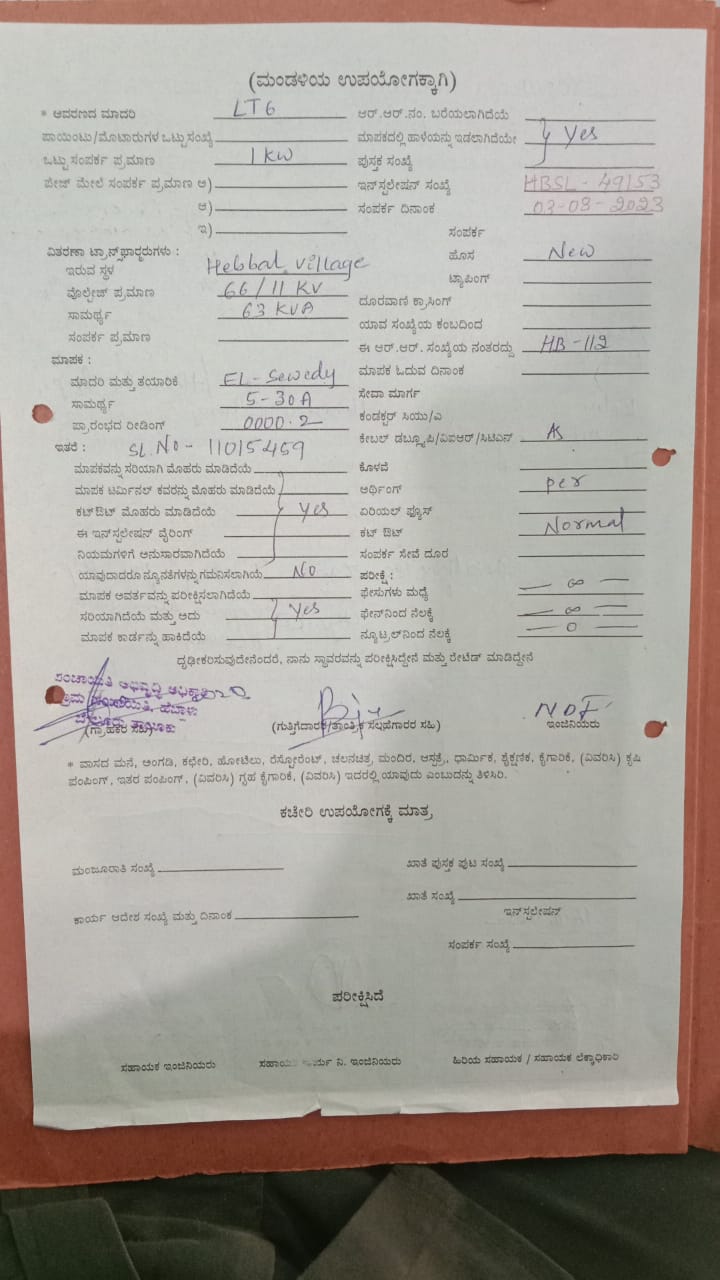 (ಮಂಡಳಿಯ ಉಪಯೋಗಕ್ಕಾಗಿ)
* ಆವರಣದ ಮಾದರಿ LT6
ಪಾಯಿಂಟು/ಮೊಟಾರುಗಳ ಒಟ್ಟು ಸಂಖ್ಯೆ
ಒಟ್ಟು ಸಂಪರ್ಕ ಪ್ರಮಾಣ 1 KW
ಪೇಜ್ ಮೇಲೆ ಸಂಪರ್ಕ ಪ್ರಮಾಣ ಅ)
ಆ)
ಇ)
ವಿತರಣಾ ಟ್ರಾನ್ಸ್‌ಫಾರ್ಮರುಗಳು :
ಇರುವ ಸ್ಥಳ Hebbal village
ವೊಲ್ಟೇಜ್ ಪ್ರಮಾಣ 66/11 KV
ಸಾಮರ್ಥ್ಯ 63 KVA
ಸಂಪರ್ಕ ಪ್ರಮಾಣ
ಮಾಪಕ :
ಮಾದರಿ ಮತ್ತು ತಯಾರಿಕೆ EL-Sewedy
ಸಾಮರ್ಥ್ಯ 5-30A
ಪ್ರಾರಂಭದ ರೀಡಿಂಗ್ 0000.2
ಇತರೆ : SL.NO- 11015459
ಮಾಪಕವನ್ನು ಸರಿಯಾಗಿ ಮೊಹರು ಮಾಡಿದೆಯೆ
ಮಾಪಕ ಟರ್ಮಿನಲ್ ಕವರನ್ನು ಮೊಹರು ಮಾಡಿದೆಯೆ
ಕಟ್‌ಔಟ್ ಮೊಹರು ಮಾಡಿದೆಯೆ Yes
ಈ ಇನ್‌ಸ್ಟಲೇಷನ್ ವೈರಿಂಗ್
ನಿಯಮಗಳಿಗೆ ಅನುಸಾರವಾಗಿದೆಯೆ
ಯಾವುದಾದರೂ ನ್ಯೂನತೆಗಳನ್ನು ಗಮನಿಸಲಾಗಿಯೆ NO
ಮಾಪಕ ಅವರ್ತವನ್ನು ಪರೀಕ್ಷಿಸಲಾಗಿದೆಯೆ
ಸರಿಯಾಗಿದೆಯೆ ಮತ್ತು ಅದು Yes
ಮಾಪಕ ಕಾರ್ಡನ್ನು ಹಾಕಿದೆಯೆ
ಆರ್.ಆರ್.ನಂ. ಬರೆಯಲಾಗಿದೆಯೆ
ಮಾಪಕದಲ್ಲಿ ಹಾಳೆಯನ್ನು ಇಡಲಾಗಿದೆಯೇ Yes
ಪುಸ್ತಕ ಸಂಖ್ಯೆ
ಇನ್‌ಸ್ಟಲೇಷನ್ ಸಂಖ್ಯೆ HBSL-49153
ಸಂಪರ್ಕ ದಿನಾಂಕ 03-08-2023
ಸಂಪರ್ಕ
ಹೊಸ New
ಟ್ಯಾಪಿಂಗ್
ದೂರವಾಣಿ ಕ್ರಾಸಿಂಗ್
ಯಾವ ಸಂಖ್ಯೆಯ ಕಂಬದಿಂದ
ಈ ಆರ್.ಆರ್. ಸಂಖ್ಯೆಯ ನಂತರದ್ದು HB-112
ಮಾಪಕ ಓದುವ ದಿನಾಂಕ
ಸೇದಾ ಮಾರ್ಗ
ಕಂಡಕ್ಟರ್ ಸಿಯು/ಎ
ಕೇಬಲ್ ಡಬ್ಲ್ಯೂಪಿ/ವಿಐಆರ್/ಸಿಟಿಎಸ್ As
ಕೊಳವೆ
ಅರ್ಥಿಂಗ್ per
ಏರಿಯಲ್ ಫ್ಯೂಸ್
ಕಟ್ ಔಟ್ Normal
ಸಂಪರ್ಕ ಸೇವೆ ದೂರ
ಪರೀಕ್ಷೆ :
ಫೇಸುಗಳು ಮಧ್ಯೆ — ∞ —
ಫೇಸ್‌ನಿಂದ ನೆಲಕ್ಕೆ — ∞ —
ನ್ಯೂಟ್ರಲ್‌ನಿಂದ ನೆಲಕ್ಕೆ — 0 —
ದೃಢೀಕರಿಸುವುದೇನೆಂದರೆ, ನಾನು ಸ್ಥಾವರವನ್ನು ಪರೀಕ್ಷಿಸಿದ್ದೇನೆ ಮತ್ತು ರೇಟೆಡ್ ಮಾಡಿದ್ದೇನೆ
ಪಂಚಾಯತಿ ಅಭಿವೃದ್ಧಿ ಅಧಿಕಾರಿ
ಗ್ರಾಮ ಪಂಚಾಯಿತಿ, ಹೆಬ್ಬಾಳು
(ಗ್ರಾಹಕರ ಸಹಿ)
(ಗುತ್ತಿಗೆದಾರರ/ತಾಂತ್ರಿಕ ಸಲಹೆಗಾರರ ಸಹಿ)
ಇಂಜಿನಿಯರು
* ವಾಸದ ಮನೆ, ಅಂಗಡಿ, ಕಛೇರಿ, ಹೋಟೆಲು, ರೆಸ್ಟೋರೆಂಟ್, ಚಲನಚಿತ್ರ, ಮಂದಿರ, ಆಸ್ಪತ್ರೆ, ಧಾರ್ಮಿಕ, ಶೈಕ್ಷಣಿಕ, ಕೈಗಾರಿಕೆ, (ವಿವರಿಸಿ) ಕೃಷಿ
ಪಂಪಿಂಗ್, ಇತರ ಪಂಪಿಂಗ್, (ವಿವರಿಸಿ) ಗೃಹ ಕೈಗಾರಿಕೆ, (ವಿವರಿಸಿ) ಇದರಲ್ಲಿ ಯಾವುದು ಎಂಬುದನ್ನು ತಿಳಿಸಿರಿ.
ಕಚೇರಿ ಉಪಯೋಗಕ್ಕೆ ಮಾತ್ರ
ಮಂಜೂರಾತಿ ಸಂಖ್ಯೆ
ಕಾರ್ಯ ಆದೇಶ ಸಂಖ್ಯೆ ಮತ್ತು ದಿನಾಂಕ
ಖಾತೆ ಪುಸ್ತಕ ಪುಟ ಸಂಖ್ಯೆ
ಖಾತೆ ಸಂಖ್ಯೆ
ಇನ್‌ಸ್ಟಲೇಷನ್
ಸಂಪರ್ಕ ಸಂಖ್ಯೆ
ಪರೀಕ್ಷಿಸಿದೆ
ಸಹಾಯಕ ಇಂಜಿನಿಯರು
ಸಹಾಯಕ ಕಾರ್ಯ ನಿ. ಇಂಜಿನಿಯರು
ಹಿರಿಯ ಸಹಾಯಕ / ಸಹಾಯಕ ಲೆಕ್ಕಾಧಿಕಾರಿ